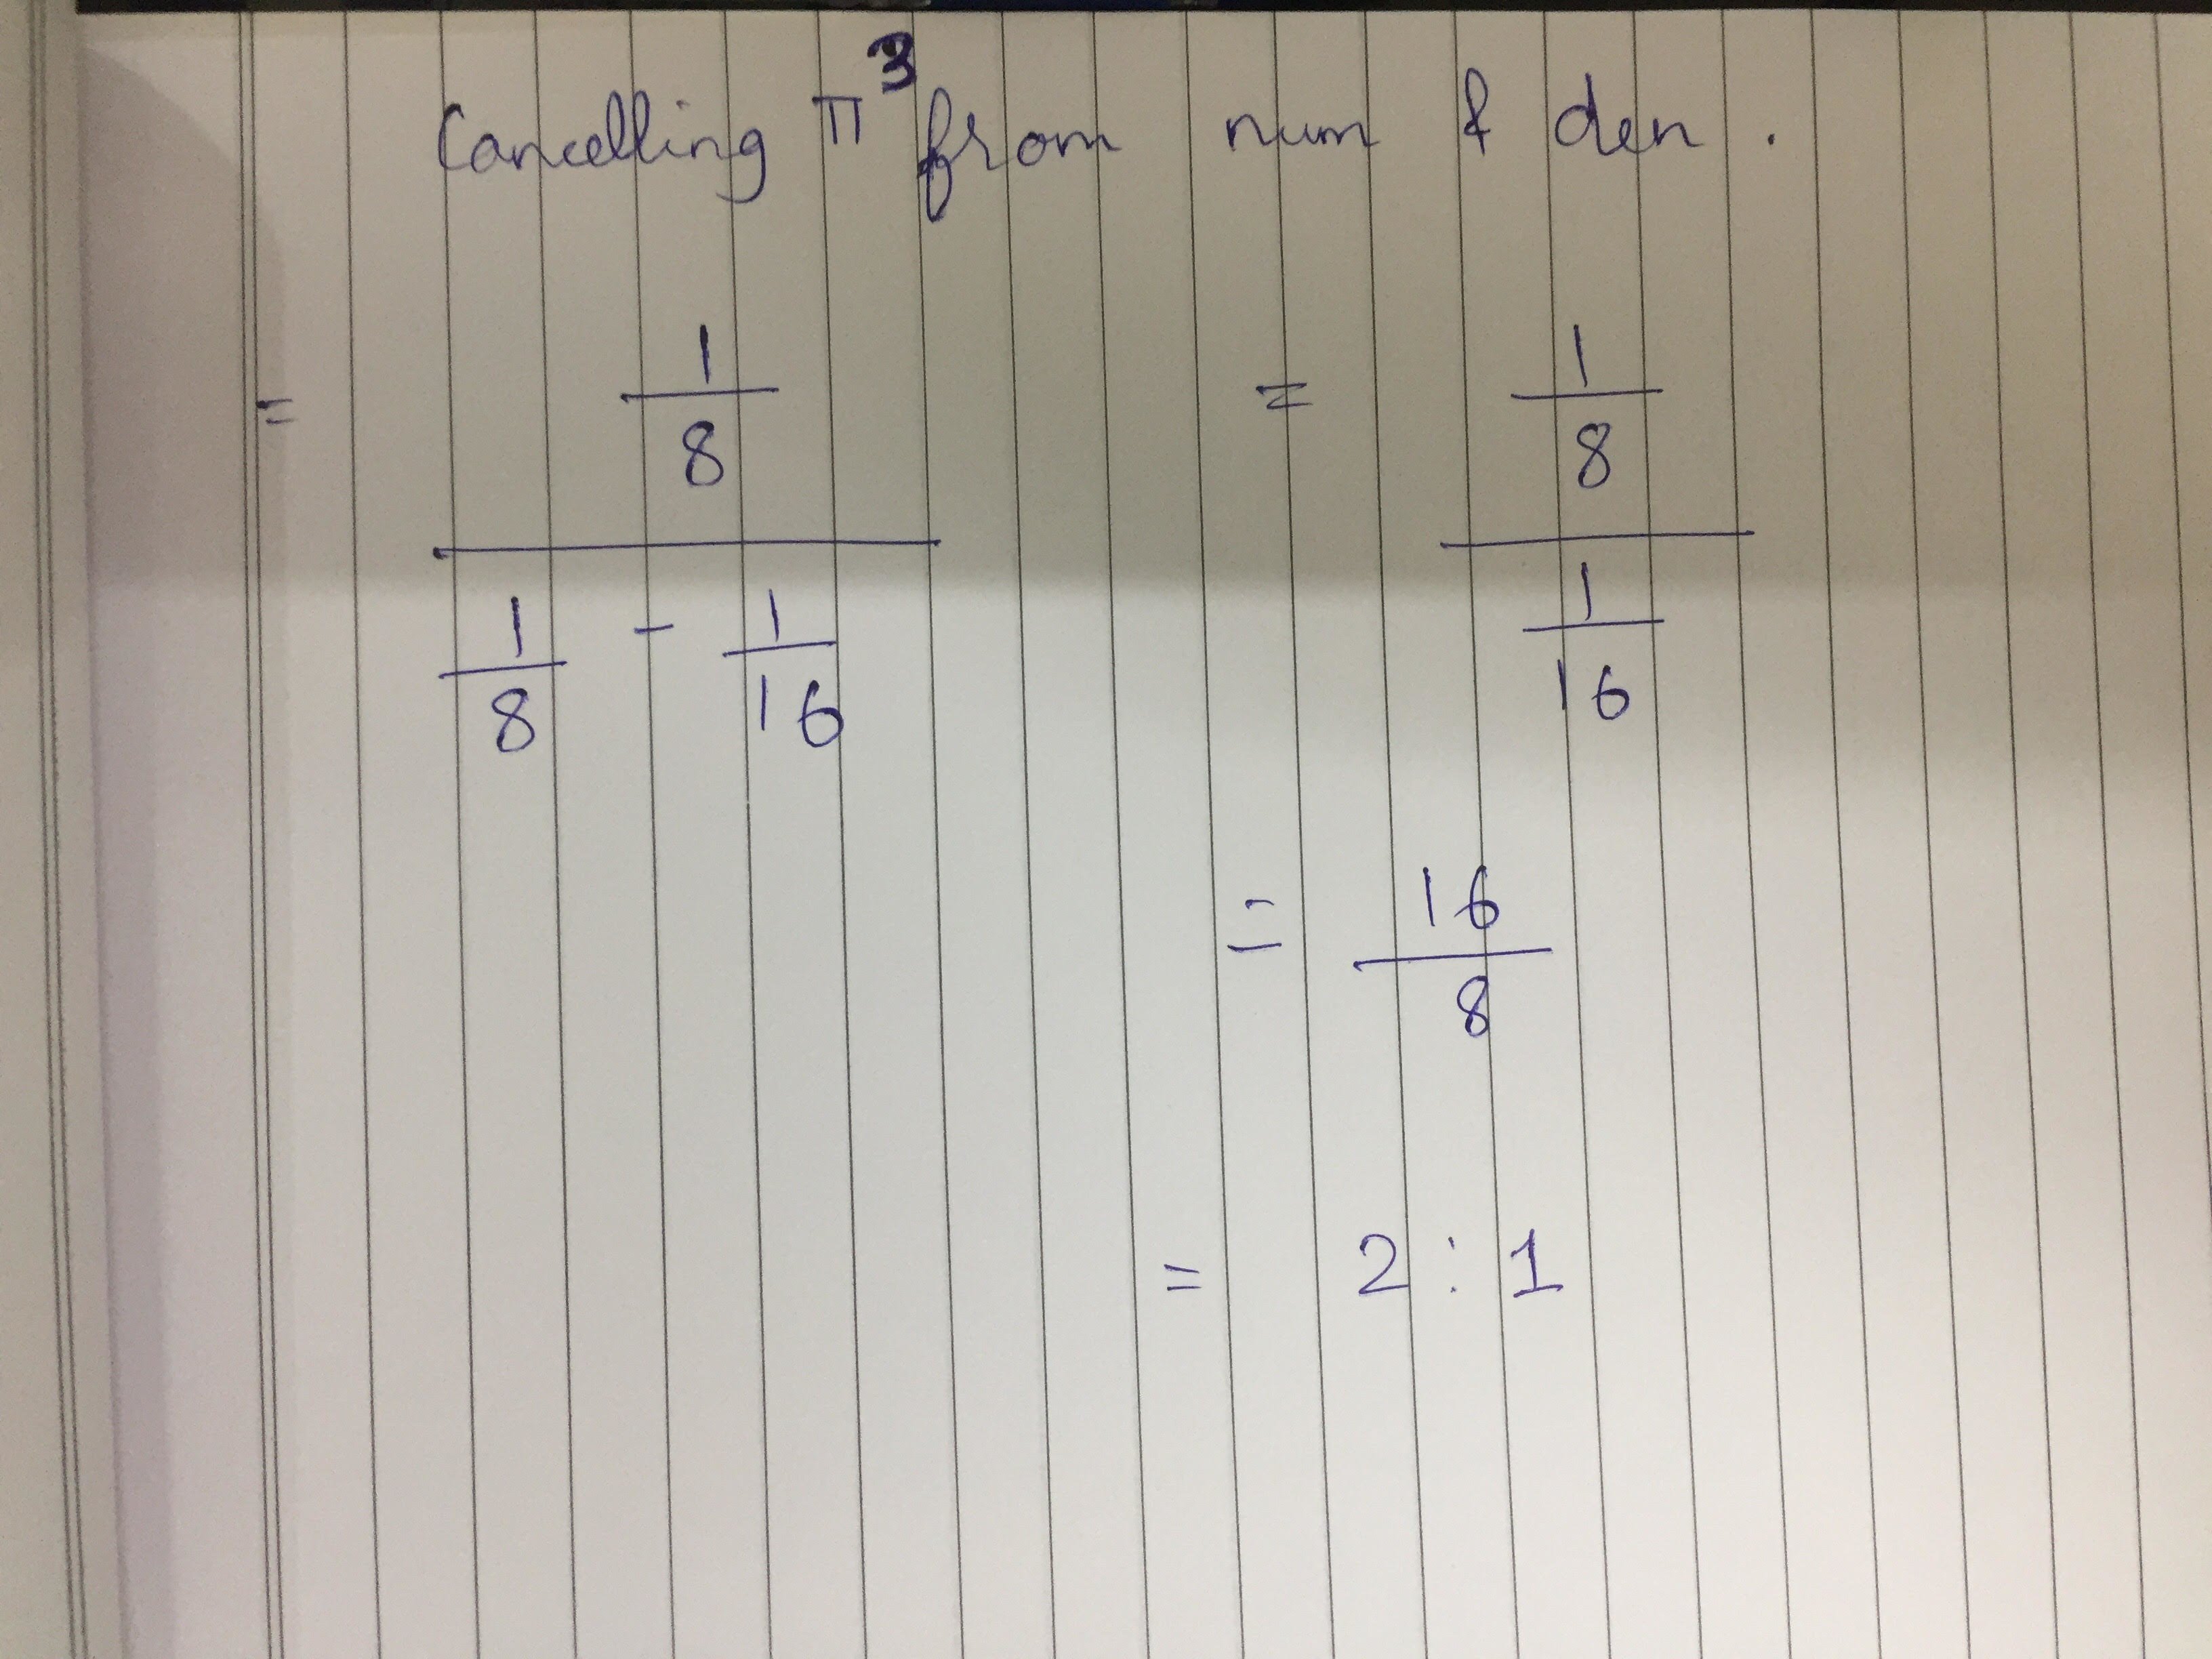 Cancelling π³ from num & den.
= 1/8 / (1/8 - 1/16) = 1/8 / 1/16
= 16/8
= 2 : 1